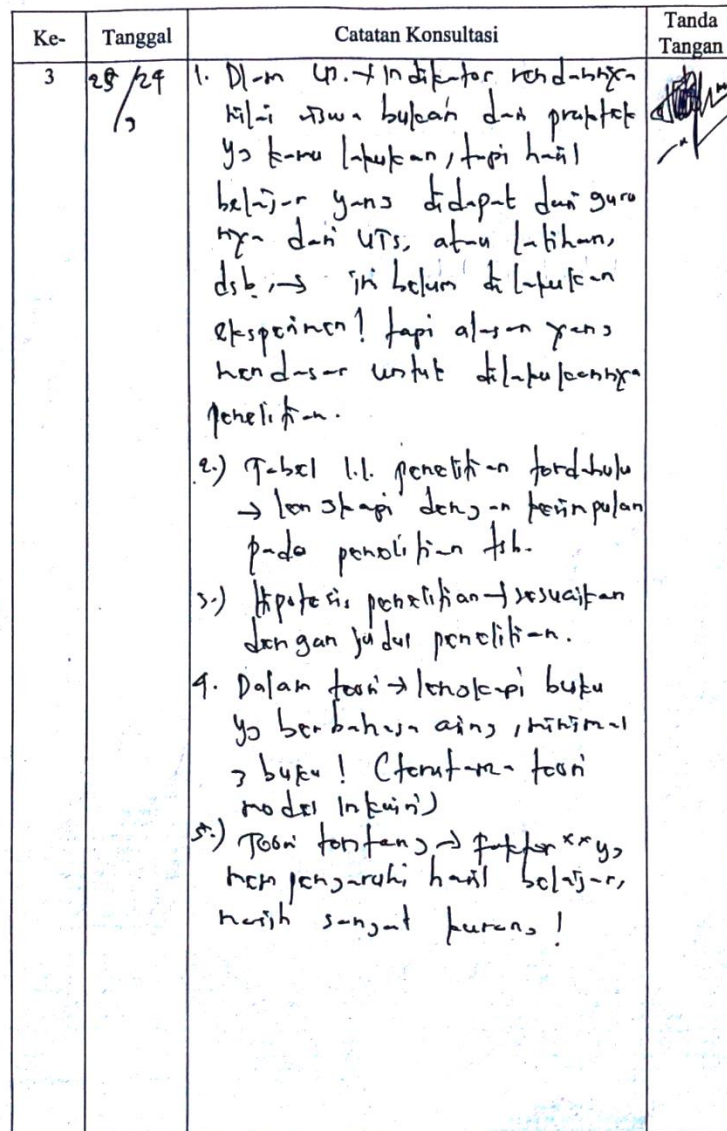 Ke-
Tanggal
Catatan Konsultasi
Tanda
Tangan
3
1. Dlam indikator rendahnya
nilai siswa bukan dari praktek
yg kamu lakukan, tapi hasil
belajar yang didapat dari guru
nya dari UTS, atau latihan,
dsb, → ini belum dilakukan
eksperimen! tapi alasan yang
mendasar untuk dilakukannya
penelitian.
2.) Tabel 1.1. penelitian terdahulu
→ lengkapi dengan kesimpulan
pada penelitian tsb.
3.) Hipotesis penelitian → sesuaikan
dengan judul penelitian.
4. Dalam teori → lengkapi buku
yg berbahasa asing, minimal
3 buku! (terutama teori
model inkuiri)
5.) Teori tentang → faktor xx yg
mempengaruhi hasil belajar,
masih sangat kurang!